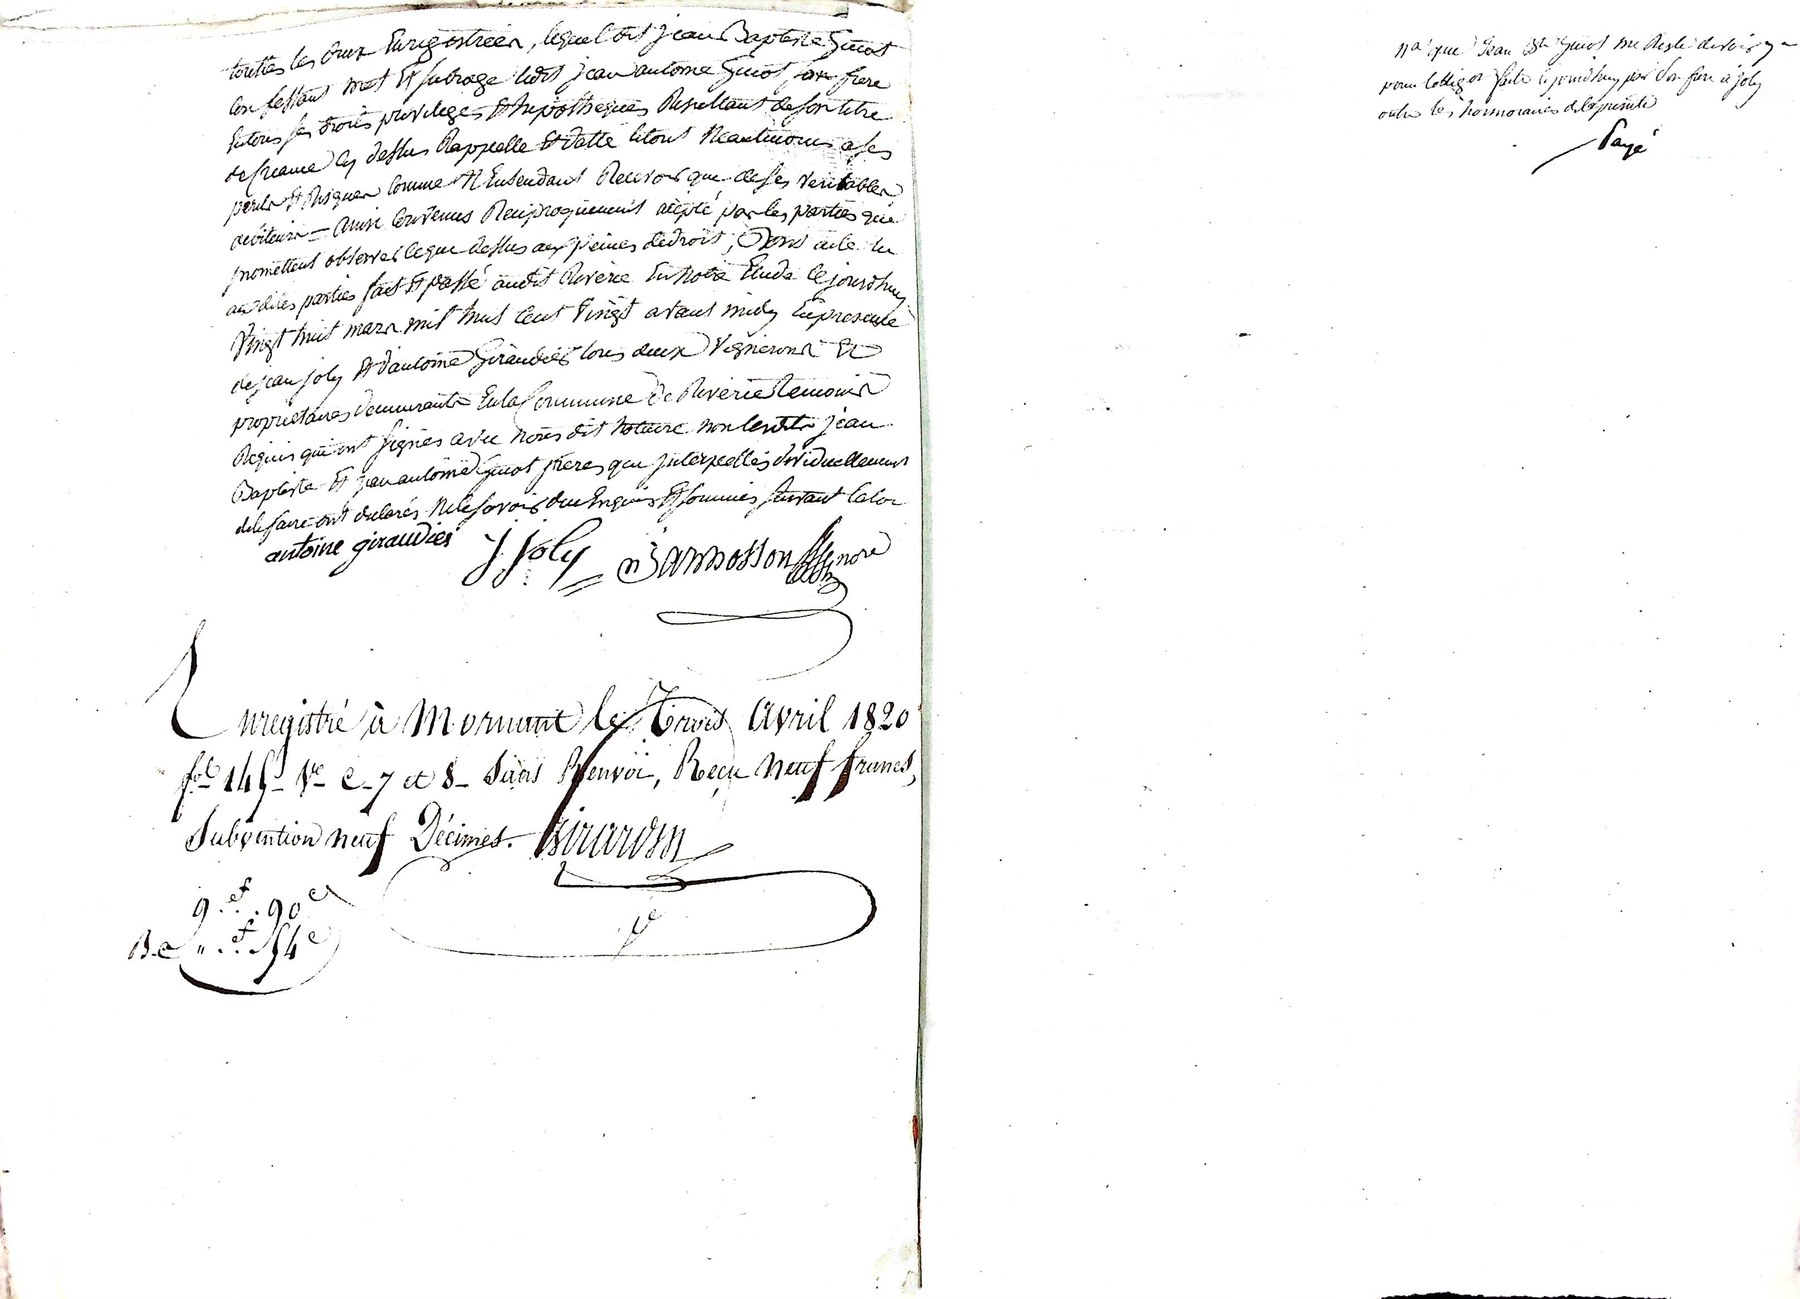 touttes les deux Enrigistrées, lequel dit jean Baptiste Guiot
Confessant met Et subroge ledit jean antoine Guiot son frere
En tous ses droits privileges Et hypotheques Resultant de son titre
de Creance cy dessus Rappelle Et datté le tout Neantmoins a ses
perils Et Risques Comme N'Entendant Recevoir que de ses veritables
debiteurs = Ainsi Convenus Reciproquement accepté par les parties qui
promettent observer ce que dessus aux peines de droit, Dont acte lu
aux dites parties fait Et passé audit Riverie En notre Etude le jourd'huy
Vingt huit mars mil huit Cent Vingt avant midy En presence
de jean joly Et d'antoine Giraudier tous deux Vignerons Et
proprietaires demeurants En la Commune de Riverie temoins
Requis qui ont signés avec nous dit Notaire non lesdits jean
Baptiste Et jean antoine Guiot freres que jnterpellés dividuellement
de le faire ont declarés Ne le savoir du Enquis Et sommés suivant la loi
antoine giraudier J Joly Jannosson nore
Enregistré à Mornant le Trois Avril 1820
fo 145 Vo C. 7 et 8 Sans Renvoi, Reçu Neuf francs,
Subvention neuf Décimes. Girardon
9.f.90c
B.e " .f 54c
na que Jean Bte Guiot me Reste devoir
pour l'obligon faite cejourdhuy par son frere à joly
outre les honnoraires de la presente
Payé